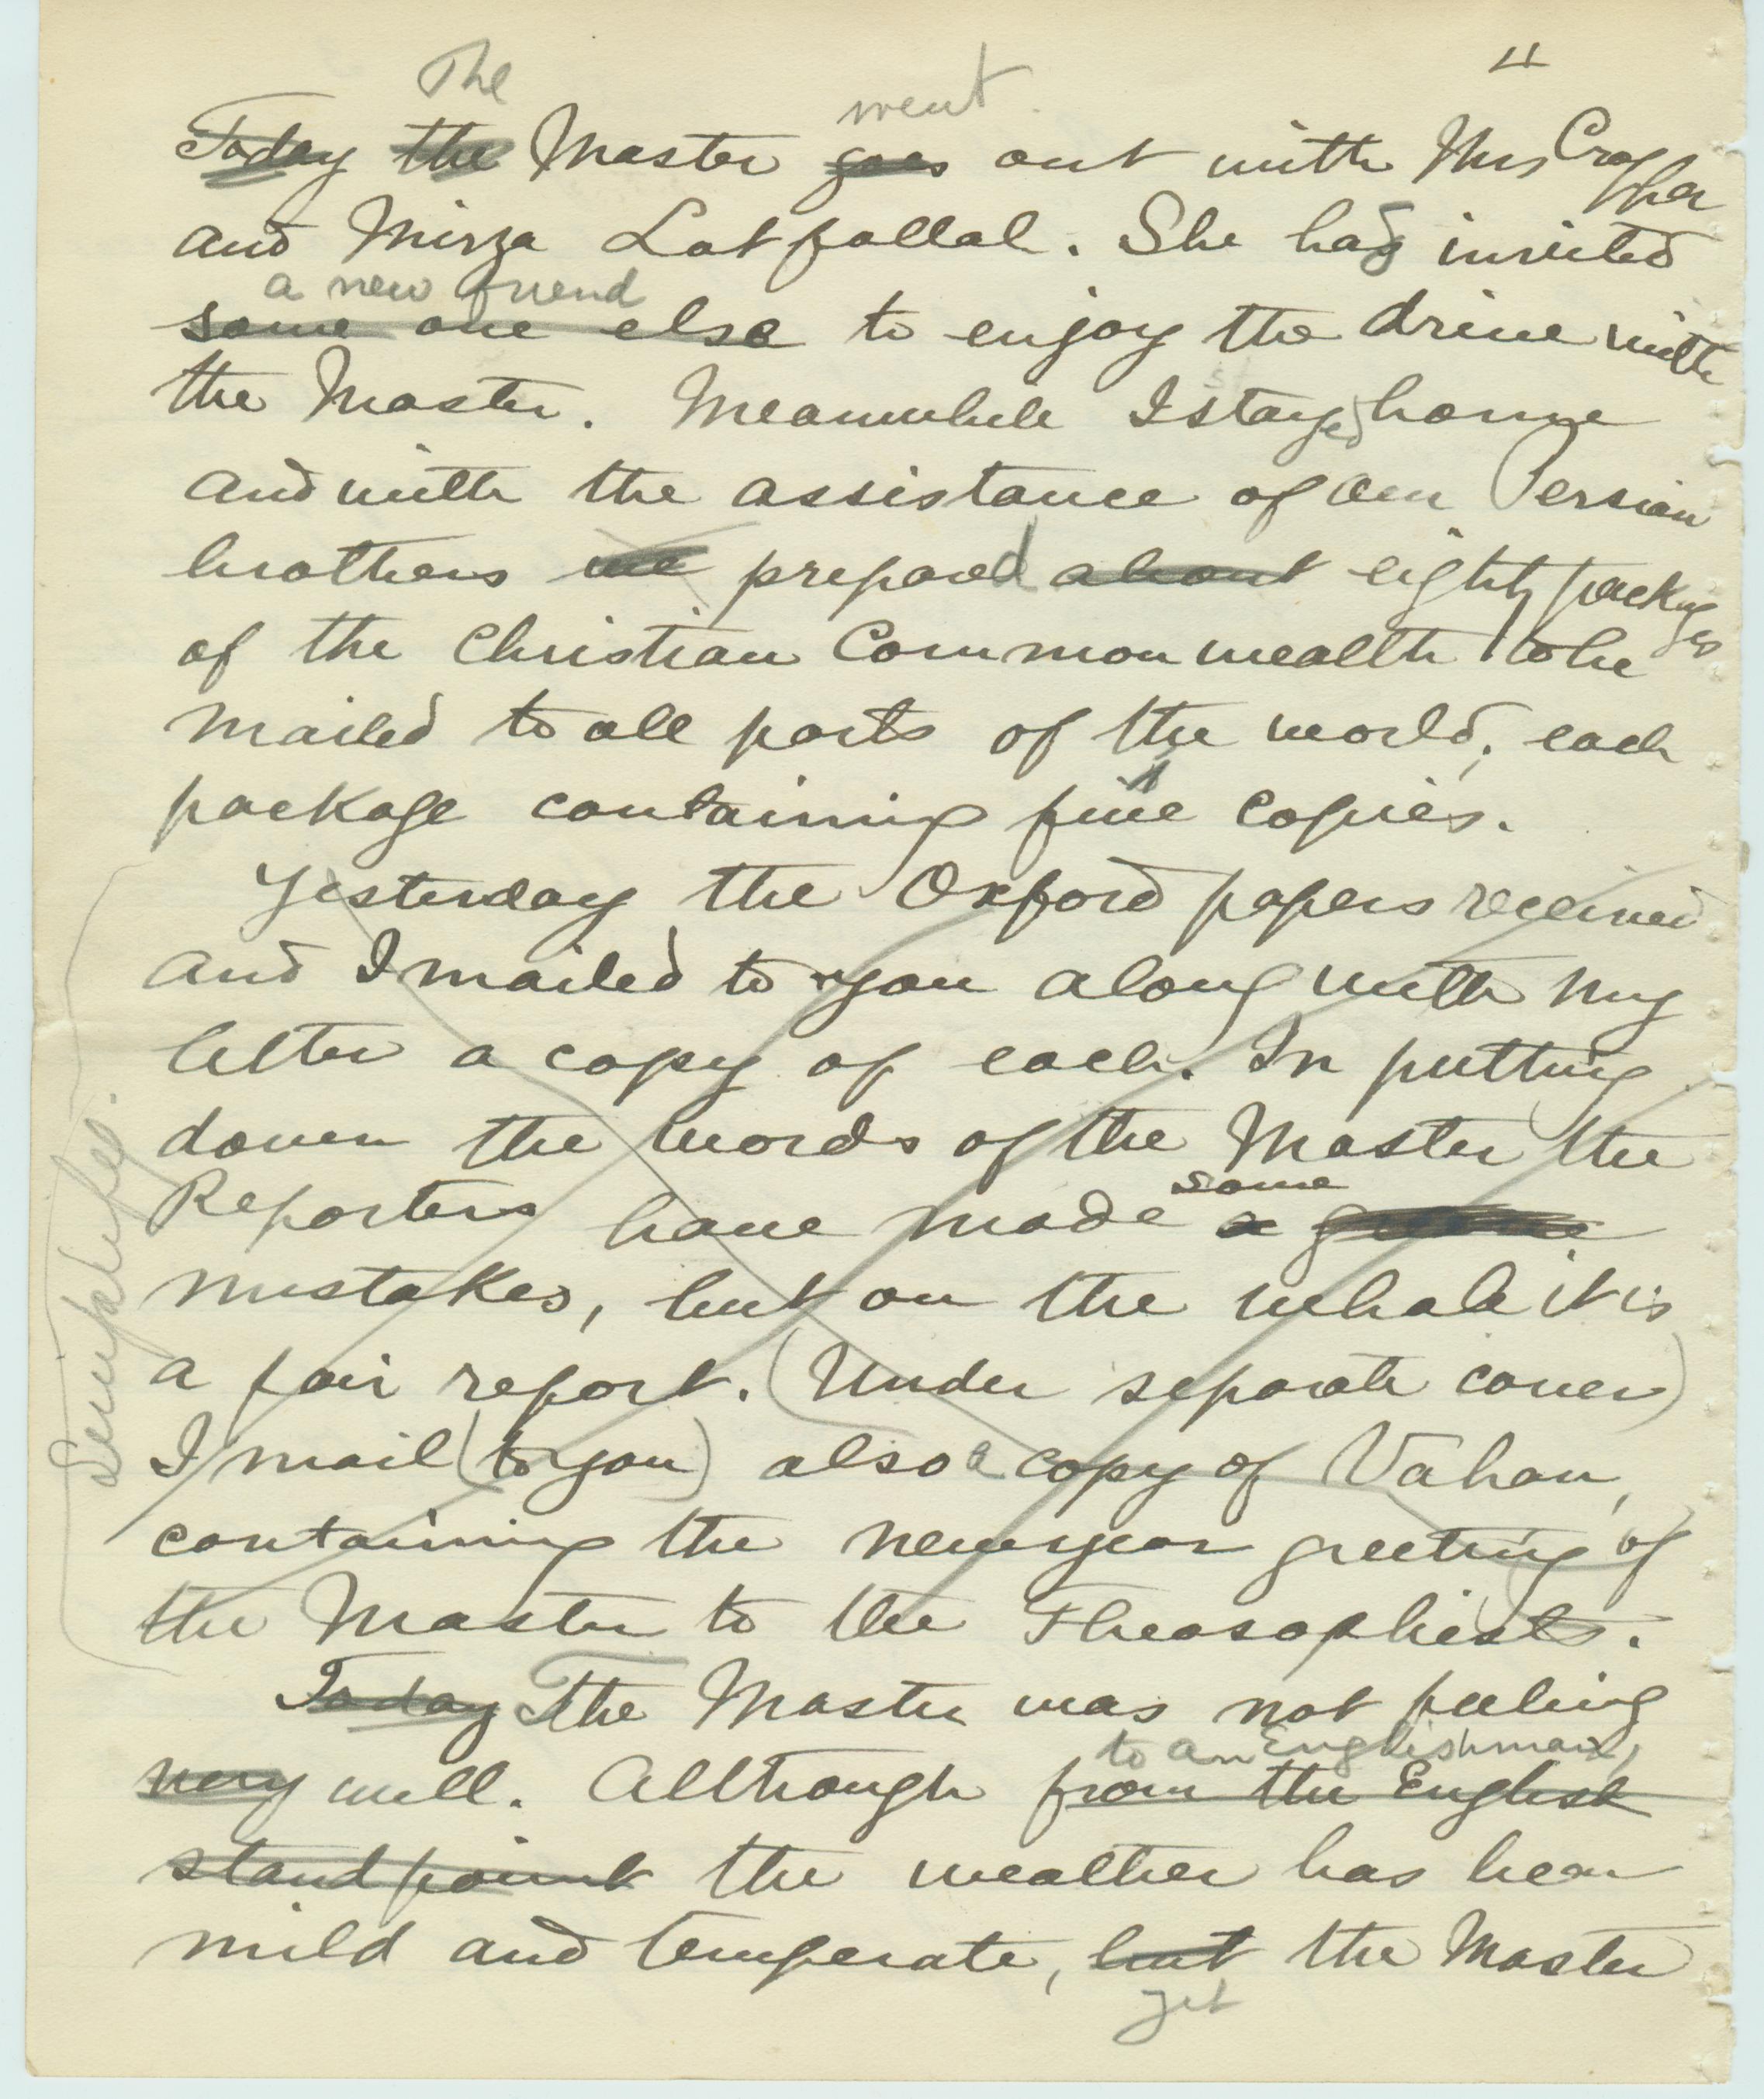 4
The went
Today the Master goes out with Mrs Cropper
and Mirza Lotfollah. She had invited
a new friend
some one else to enjoy the drive with
the Master. Meanwhile I stayed home
and with the assistance of our Persian
brothers we prepared about eighty packages
of the Christian Commonwealth to be
mailed to all parts of the world, each
package containing five copies.
Yesterday the Oxford papers received
and I mailed to you along with my
letter a copy of each. In putting
down the words of the Master the
some
Reporters have made a
mistakes, but on the whole it is
a fair report. (Under separate cover)
I mail (to you) also a copy of Vahan,
containing the newyear greeting of
the Master to the Theosophists.
Today The Master was not feeling
to an Englishman,
very well. Although from the English
standpoint the weather has been
mild and temperate, but the Master
yet